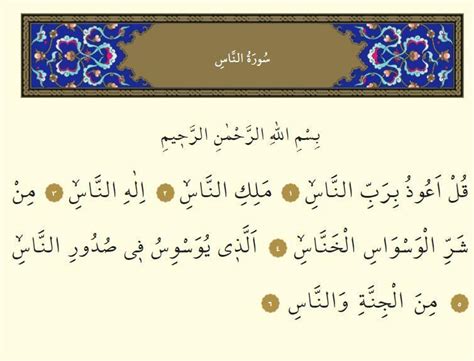 سُورَةُ النَّاسِ
بِسْمِ اللهِ الرَّحْمٰنِ الرَّحٖيمِ
قُلْ اَعُوذُ بِرَبِّ النَّاسِۙ ١ مَلِكِ النَّاسِۙ ٢ اِلٰهِ النَّاسِۙ ٣ مِنْ
شَرِّ الْوَسْوَاسِ الْخَنَّاسِۙ ٤ اَلَّذٖي يُوَسْوِسُ فٖي صُدُورِ النَّاسِۙ
٥ مِنَ الْجِنَّةِ وَالنَّاسِ ٦